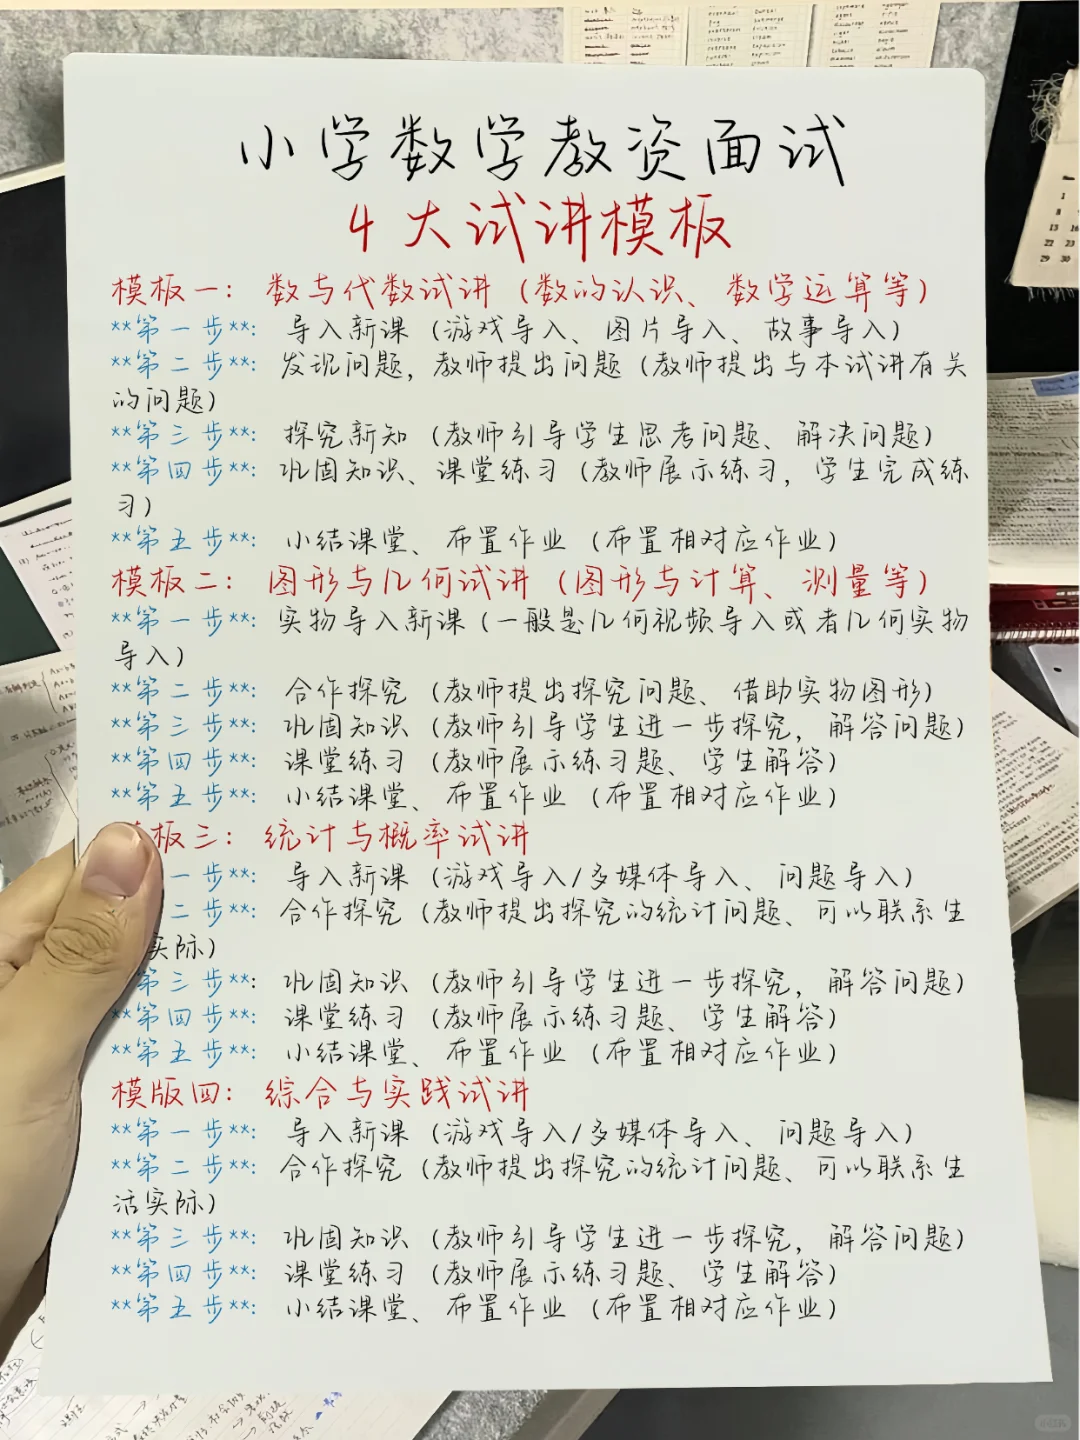 小学数学教资面试
4大试讲模板
模板一：数与代数试讲（数的认识、数学运算等）
**第一步**：导入新课（游戏导入、图片导入、故事导入）
**第二步**：发现问题，教师提出问题（教师提出与本试讲有关
的问题）
**第三步**：探究新知（教师引导学生思考问题、解决问题）
**第四步**：巩固知识、课堂练习（教师展示练习，学生完成练
习）
**第五步**：小结课堂、布置作业（布置相对应作业）
模板二：图形与几何试讲（图形与计算、测量等）
**第一步**：实物导入新课（一般是几何视频导入或者几何实物
导入）
**第二步**：合作探究（教师提出探究问题、借助实物图形）
**第三步**：巩固知识（教师引导学生进一步探究，解答问题）
**第四步**：课堂练习（教师展示练习题、学生解答）
**第五步**：小结课堂、布置作业（布置相对应作业）
板三：统计与概率试讲
一步**：导入新课（游戏导入/多媒体导入、问题导入）
二步**：合作探究（教师提出探究的统计问题、可以联系生
实际）
第三步**：巩固知识（教师引导学生进一步探究，解答问题）
**第四步**：课堂练习（教师展示练习题、学生解答）
**第五步**：小结课堂、布置作业（布置相对应作业）
模版四：综合与实践试讲
**第一步**：导入新课（游戏导入/多媒体导入、问题导入）
**第二步**：合作探究（教师提出探究的统计问题、可以联系生
活实际）
**第三步**：巩固知识（教师引导学生进一步探究，解答问题）
**第四步**：课堂练习（教师展示练习题、学生解答）
**第五步**：小结课堂、布置作业（布置相对应作业）